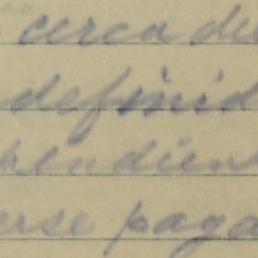 cerca de
definid
endient
erse paga